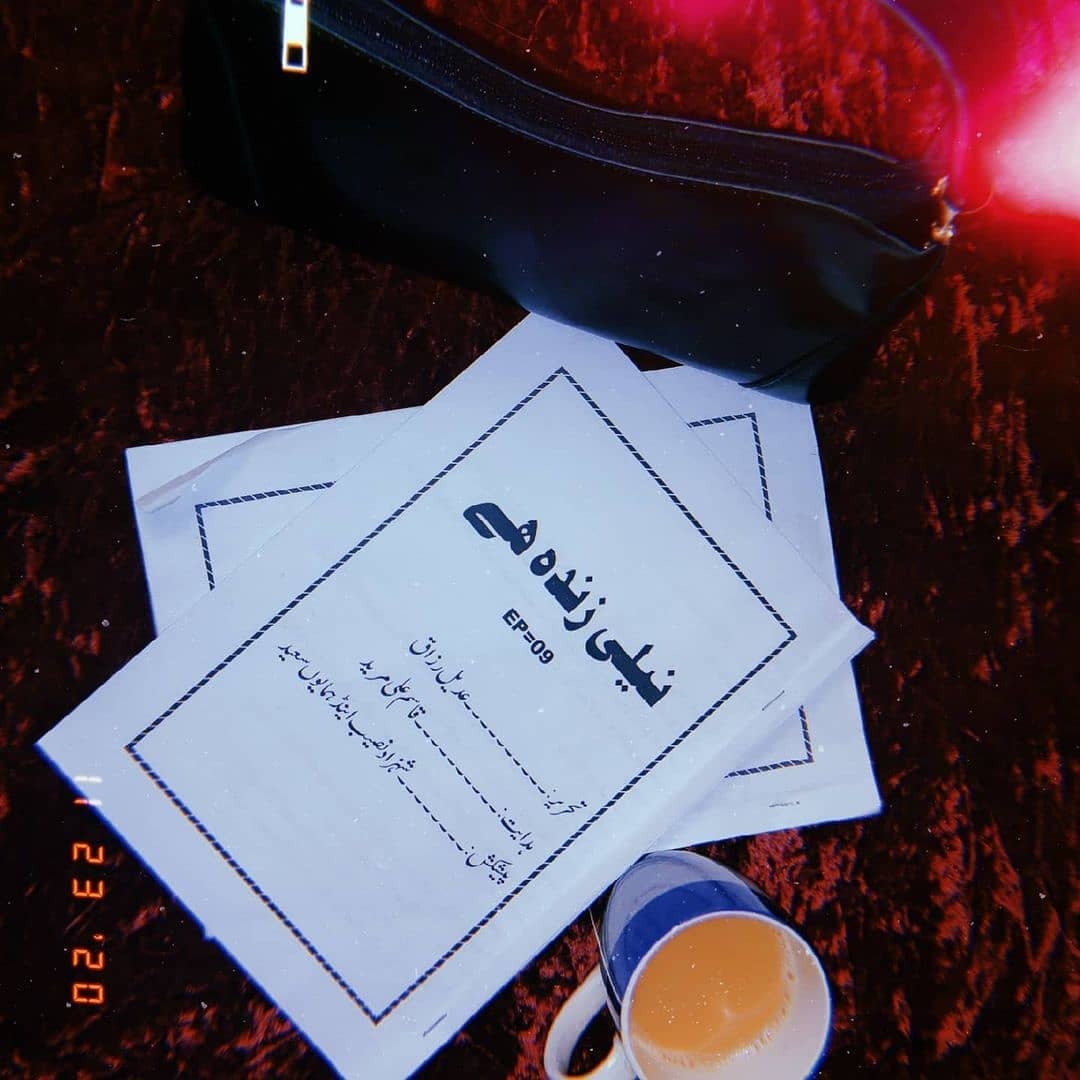 نیلی زندہ ہے
EP=09
تحریر:۔۔۔۔۔۔۔۔۔۔عدیل رزاق
ہدایت:۔۔۔۔۔۔۔۔۔۔قاسم علی مرید
پیشکش:۔۔۔۔۔۔۔۔شہزاد نصیب اینڈ ہمایوں سعید
11 23 '20